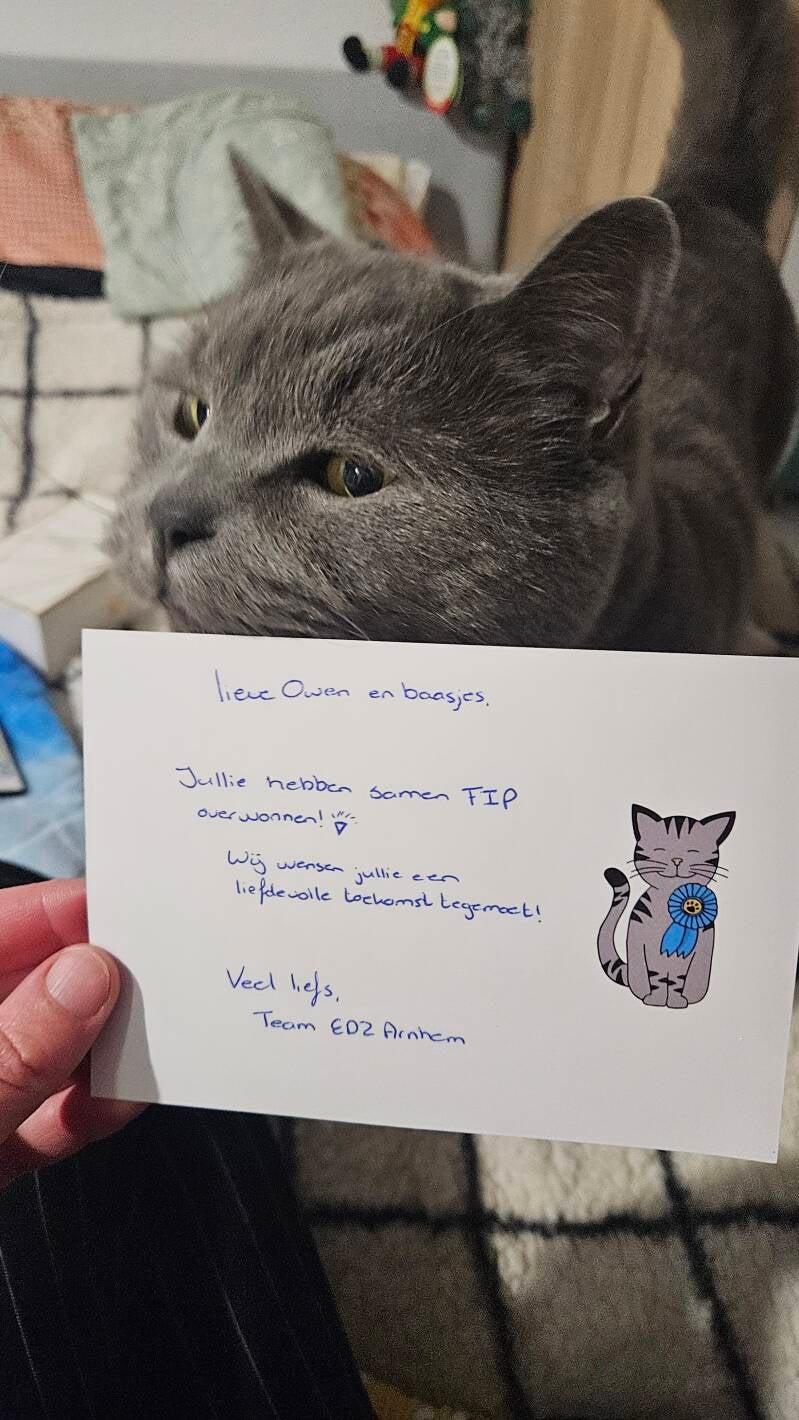 lieve Owen en baasjes,
Jullie hebben samen FIP
overwonnen!
Wij wensen jullie een
liefdevolle toekomst tegemoet!
Veel liefs,
Team EDZ Arnhem